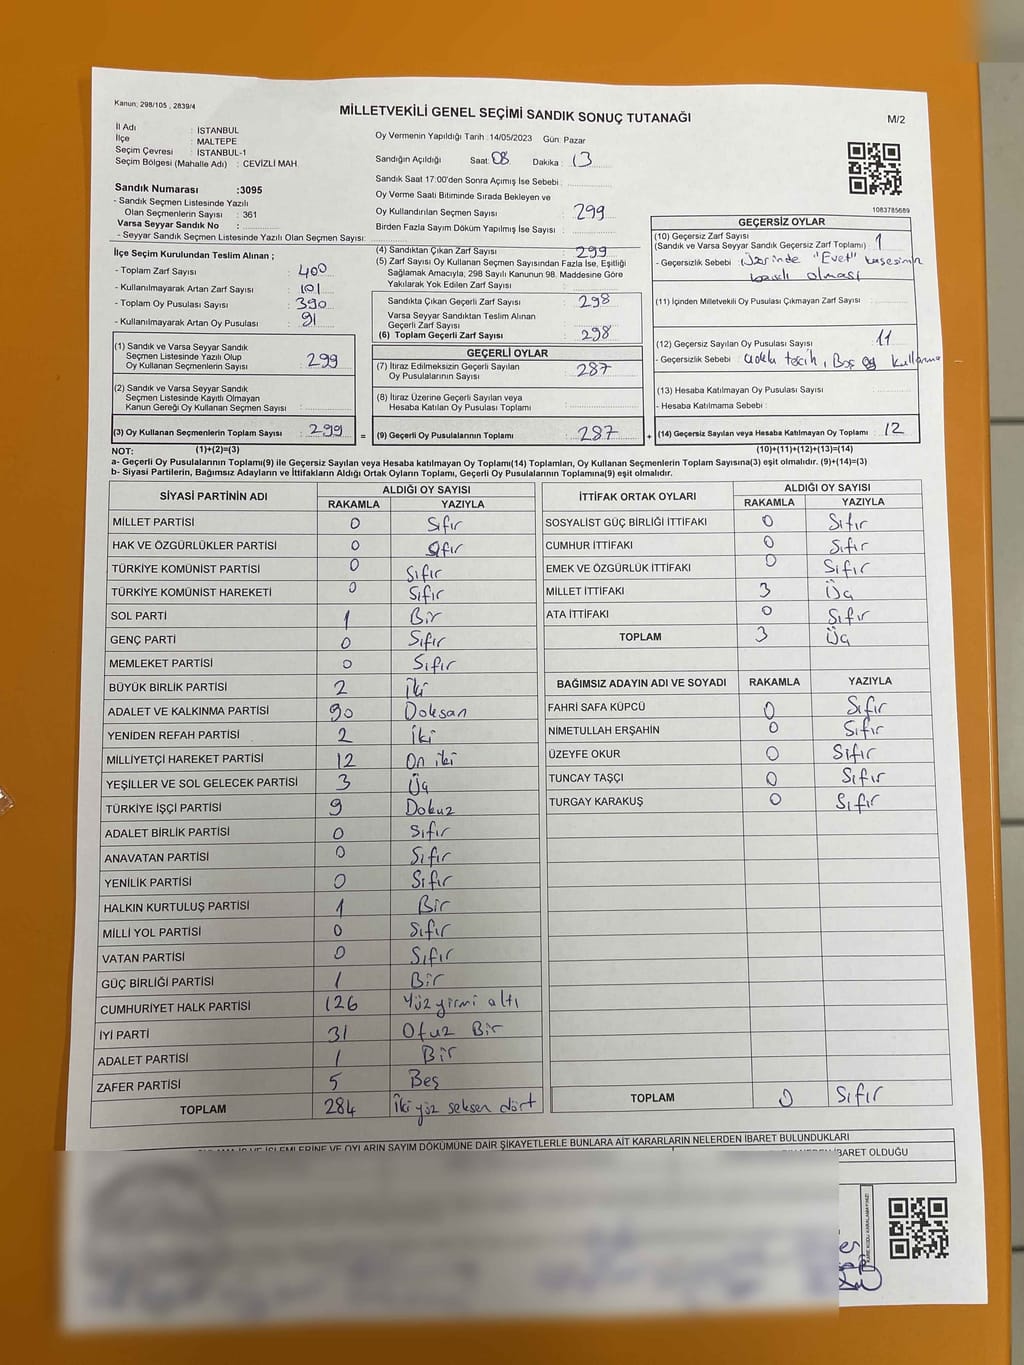 Kanun; 298/105 , 2839/4
MİLLETVEKİLİ GENEL SEÇİMİ SANDIK SONUÇ TUTANAĞI
M/2
İl Adı : İSTANBUL
İlçe : MALTEPE
Seçim Çevresi : İSTANBUL-1
Seçim Bölgesi (Mahalle Adı) : CEVİZLİ MAH.
Oy Vermenin Yapıldığı Tarih :14/05/2023 Gün: Pazar
Sandığın Açıldığı Saat: 08 Dakika : 13
Sandık Saat 17:00'den Sonra Açımış İse Sebebi :
Oy Verme Saati Bitiminde Sırada Bekleyen ve
Oy Kullandırılan Seçmen Sayısı : 299
Birden Fazla Sayım Döküm Yapılmış İse Sayısı :
1083785689
Sandık Numarası :3095
- Sandık Seçmen Listesinde Yazılı
Olan Seçmenlerin Sayısı : 361
Varsa Seyyar Sandık No :
- Seyyar Sandık Seçmen Listesinde Yazılı Olan Seçmen Sayısı:
İlçe Seçim Kurulundan Teslim Alınan ;
- Toplam Zarf Sayısı : 400
- Kullanılmayarak Artan Zarf Sayısı : 101
- Toplam Oy Pusulası Sayısı : 390
- Kullanılmayarak Artan Oy Pusulası : 91
(1) Sandık ve Varsa Seyyar Sandık
Seçmen Listesinde Yazılı Olup
Oy Kullanan Seçmenlerin Sayısı : 299
(2) Sandık ve Varsa Seyyar Sandık
Seçmen Listesinde Kayıtlı Olmayan
Kanun Gereği Oy Kullanan Seçmen Sayısı :
(3) Oy Kullanan Seçmenlerin Toplam Sayısı : 299 =
(4) Sandıktan Çıkan Zarf Sayısı : 299
(5) Zarf Sayısı Oy Kullanan Seçmen Sayısından Fazla İse, Eşitliği
Sağlamak Amacıyla, 298 Sayılı Kanunun 98. Maddesine Göre
Yakılarak Yok Edilen Zarf Sayısı :
Sandıkta Çıkan Geçerli Zarf Sayısı : 298
Varsa Seyyar Sandıktan Teslim Alınan
Geçerli Zarf Sayısı :
(6) Toplam Geçerli Zarf Sayısı : 298
GEÇERLİ OYLAR
(7) İtiraz Edilmeksizin Geçerli Sayılan
Oy Pusulalarının Sayısı : 287
(8) İtiraz Üzerine Geçerli Sayılan veya
Hesaba Katılan Oy Pusulası Toplamı :
(9) Geçerli Oy Pusulalarının Toplamı : 287 +
GEÇERSİZ OYLAR
(10) Geçersiz Zarf Sayısı
(Sandık ve Varsa Seyyar Sandık Geçersiz Zarf Toplamı) : 1
- Geçersizlik Sebebi : Üzerinde "Evet" kaşesinin
basılı olması
(11) İçinden Milletvekili Oy Pusulası Çıkmayan Zarf Sayısı :
(12) Geçersiz Sayılan Oy Pusulası Sayısı : 11
- Geçersizlik Sebebi : Çoklu tercih, Boş oy kullanma
(13) Hesaba Katılmayan Oy Pusulası Sayısı :
- Hesaba Katılmama Sebebi :
(14) Geçersiz Sayılan veya Hesaba Katılmayan Oy Toplamı : 12
NOT: (1)+(2)=(3) (10)+(11)+(12)+(13)=(14)
a- Geçerli Oy Pusulalarının Toplamı(9) ile Geçersiz Sayılan veya Hesaba katılmayan Oy Toplamı(14) Toplamları, Oy Kullanan Seçmenlerin Toplam Sayısına(3) eşit olmalıdır. (9)+(14)=(3)
b- Siyasi Partilerin, Bağımsız Adayların ve İttifakların Aldığı Ortak Oyların Toplamı, Geçerli Oy Pusulalarının Toplamına(9) eşit olmalıdır.
SİYASİ PARTİNİN ADI ALDIĞI OY SAYISI
RAKAMLA YAZIYLA
MİLLET PARTİSİ 0 Sıfır
HAK VE ÖZGÜRLÜKLER PARTİSİ 0 Sıfır
TÜRKİYE KOMÜNİST PARTİSİ 0 Sıfır
TÜRKİYE KOMÜNİST HAREKETİ 0 Sıfır
SOL PARTİ 1 Bir
GENÇ PARTİ 0 Sıfır
MEMLEKET PARTİSİ 0 Sıfır
BÜYÜK BİRLİK PARTİSİ 2 İki
ADALET VE KALKINMA PARTİSİ 90 Doksan
YENİDEN REFAH PARTİSİ 2 İki
MİLLİYETÇİ HAREKET PARTİSİ 12 On iki
YEŞİLLER VE SOL GELECEK PARTİSİ 3 Üç
TÜRKİYE İŞÇİ PARTİSİ 9 Dokuz
ADALET BİRLİK PARTİSİ 0 Sıfır
ANAVATAN PARTİSİ 0 Sıfır
YENİLİK PARTİSİ 0 Sıfır
HALKIN KURTULUŞ PARTİSİ 1 Bir
MİLLİ YOL PARTİSİ 0 Sıfır
VATAN PARTİSİ 0 Sıfır
GÜÇ BİRLİĞİ PARTİSİ 1 Bir
CUMHURİYET HALK PARTİSİ 126 Yüz yirmi altı
İYİ PARTİ 31 Otuz Bir
ADALET PARTİSİ 1 Bir
ZAFER PARTİSİ 5 Beş
TOPLAM 284 İki yüz seksen dört
İTTİFAK ORTAK OYLARI ALDIĞI OY SAYISI
RAKAMLA YAZIYLA
SOSYALİST GÜÇ BİRLİĞİ İTTİFAKI 0 Sıfır
CUMHUR İTTİFAKI 0 Sıfır
EMEK VE ÖZGÜRLÜK İTTİFAKI 0 Sıfır
MİLLET İTTİFAKI 3 Üç
ATA İTTİFAKI 0 Sıfır
TOPLAM 3 Üç
BAĞIMSIZ ADAYIN ADI VE SOYADI RAKAMLA YAZIYLA
FAHRİ SAFA KÜPCÜ 0 Sıfır
NİMETULLAH ERŞAHİN 0 Sıfır
ÜZEYFE OKUR 0 Sıfır
TUNCAY TAŞÇI 0 Sıfır
TURGAY KARAKUŞ 0 Sıfır
TOPLAM 0 Sıfır
İŞLEMLERİNE VE OYLARIN SAYIM DÖKÜMÜNE DAİR ŞİKAYETLERLE BUNLARA AİT KARARLARIN NELERDEN İBARET BULUNDUKLARI
İBARET OLDUĞU